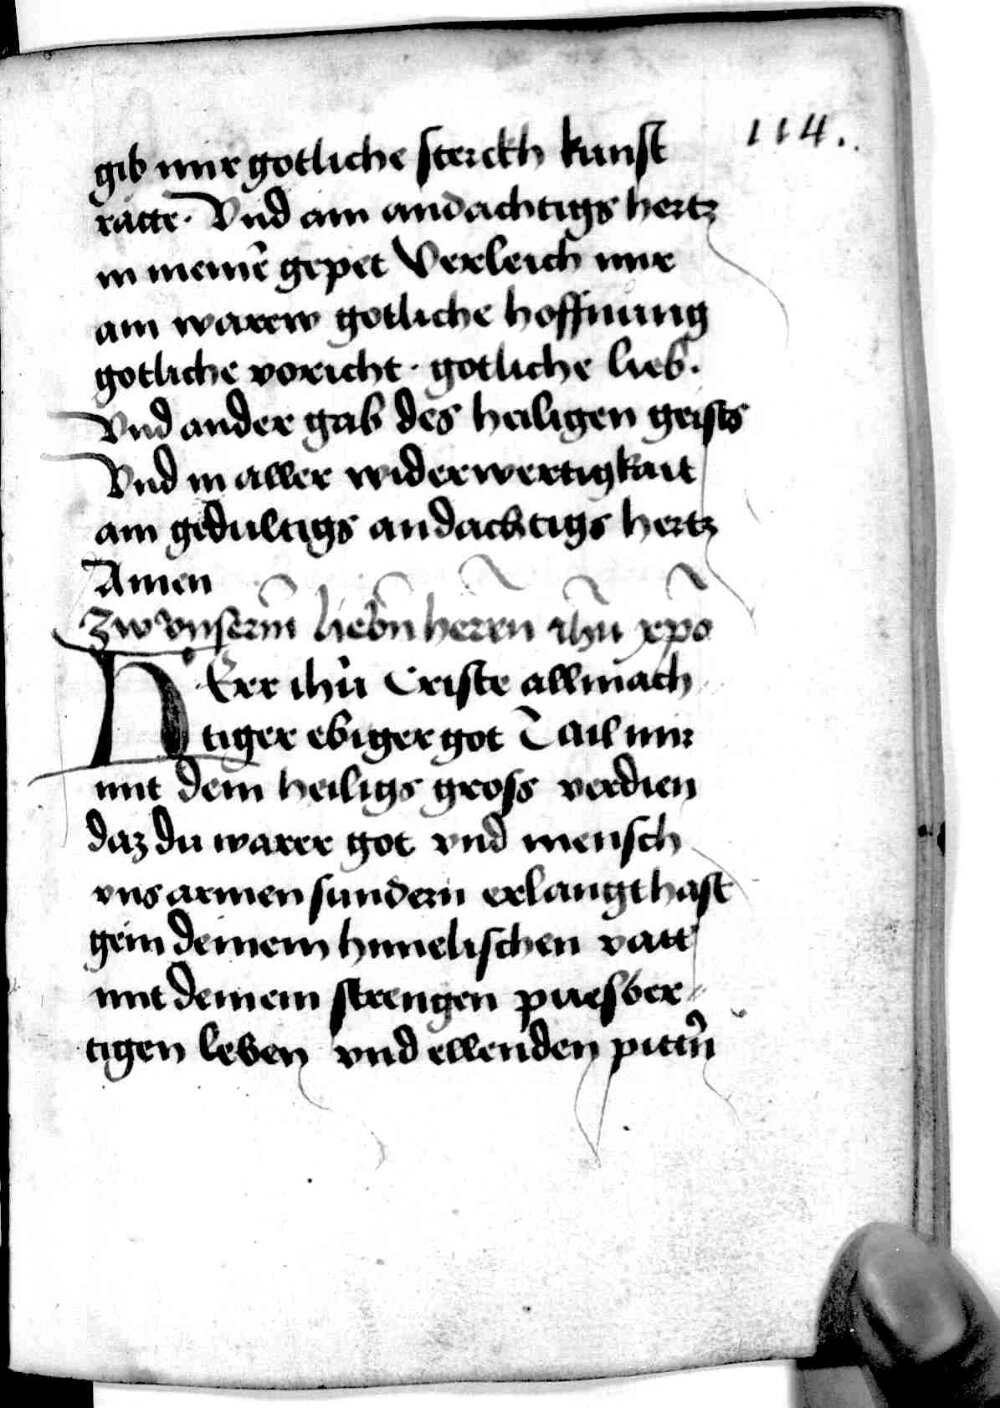 114.
gib mir gotliche sterckh kunst
rätte. Vnd ain andachtigs hertz
in meinē gepet Verleich mir
ain warew gotliche hoffnung
gotliche voricht · gotliche lieb.
Vnd ander gab des heiligen geists
Vnd in aller widerwertigkait
ain gedultigs andachtigs hertz
Amen
Zw vnserm̄ liebn̄ heren̄ ihū xp̄o
HErr ihū Criste allmäch
tiger ebiger got Tail mir
mit dem heiligs gross verdien
daz du warer got vnd mensch
vns armen sundern erlangt hast
gein deinem himelischen vatt
mit deinem strengen puesber
tigen leben vnd ellenden pittn̄